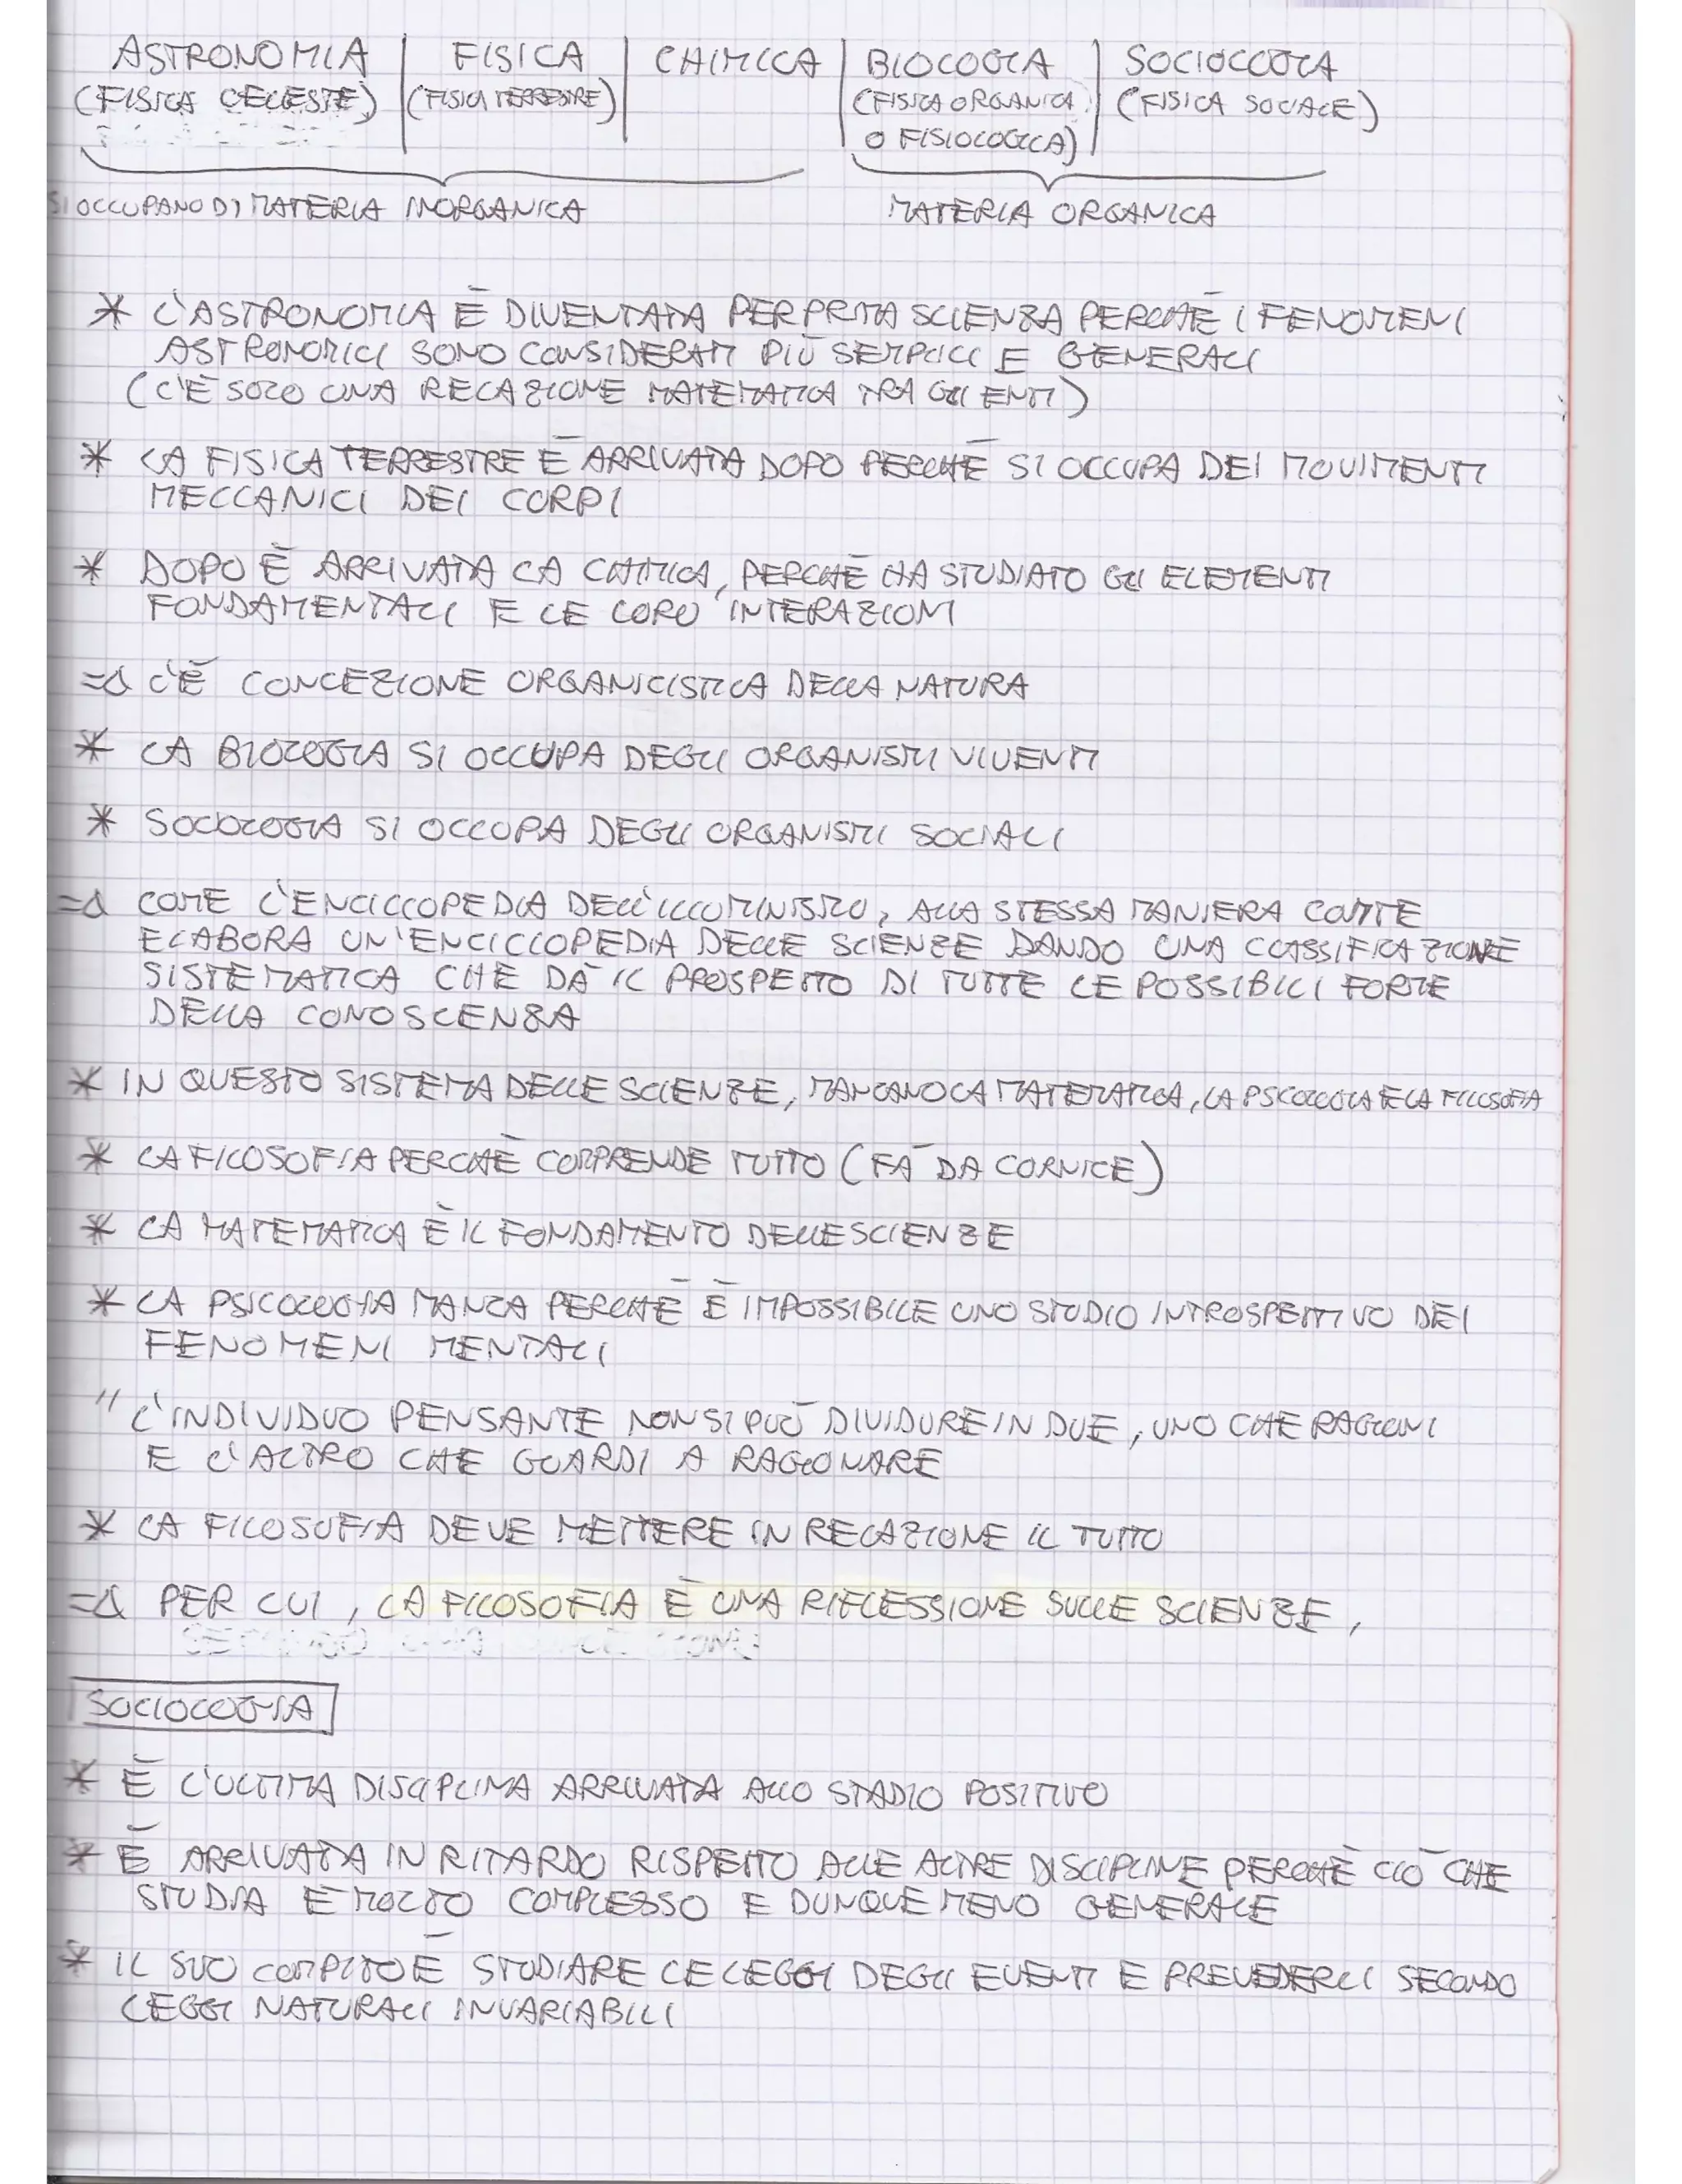 ASTRONOMIA | FISICA | CHIMICA | BIOLOGIA | SOCIOLOGIA
(FISICA CELESTE) (FISICA TERRESTRE) (FISICA ORGANICA (FISICA SOCIALE)
O FISIOLOGICA)
SI OCCUPANO DI MATERIA INORGANICA MATERIA ORGANICA
* L'ASTRONOMIA È DIVENTATA PER PRIMA SCIENZA PERCHÈ I FENOMENI
ASTRONOMICI SONO CONSIDERATI PIÙ SEMPLICI E GENERALI
(C'È SOLO UNA RELAZIONE MATEMATICA TRA GLI ENTI)
* LA FISICA TERRESTRE È ARRIVATA DOPO PERCHÈ SI OCCUPA DEI MOVIMENTI
MECCANICI DEI CORPI
* DOPO È ARRIVATA LA CHIMICA, PERCHÈ HA STUDIATO GLI ELEMENTI
FONDAMENTALI E LE LORO INTERAZIONI
=> C'È CONCEZIONE ORGANICISTICA DELLA NATURA
* LA BIOLOGIA SI OCCUPA DEGLI ORGANISMI VIVENTI
* SOCIOLOGIA SI OCCUPA DEGLI ORGANISMI SOCIALI
=> COME L'ENCICLOPEDIA DELL'ILLUMINISMO, ALLA STESSA MANIERA COMTE
ELABORA UN'ENCICLOPEDIA DELLE SCIENZE DANDO UNA CLASSIFICAZIONE
SISTEMATICA CHE DÀ IL PROSPETTO DI TUTTE LE POSSIBILI FORME
DELLA CONOSCENZA
* IN QUESTO SISTEMA DELLE SCIENZE, MANCANO LA MATEMATICA, LA PSICOLOGIA E LA FILOSOFIA
* LA FILOSOFIA PERCHÈ COMPRENDE TUTTO (FÀ DA CORNICE)
* LA MATEMATICA È IL FONDAMENTO DELLE SCIENZE
* LA PSICOLOGIA MANCA PERCHÈ È IMPOSSIBILE UNO STUDIO INTROSPETTIVO DEI
FENOMENI MENTALI
" L'INDIVIDUO PENSANTE NON SI PUÒ DIVIDURE IN DUE, UNO CHE RAGIONI
E L'ALTRO CHE GUARDI A RAGIONARE
* LA FILOSOFIA DEVE METTERE IN RELAZIONE IL TUTTO
=> PER CUI, LA FILOSOFIA È UNA RIFLESSIONE SULLE SCIENZE,
SOCIOLOGIA
* È L'ULTIMA DISCIPLINA ARRIVATA ALLO STADIO POSITIVO
* È ARRIVATA IN RITARDO RISPETTO ALLE ALTRE DISCIPLINE PERCHÈ CIÒ CHE
STUDIA È MOLTO COMPLESSO E DUNQUE MENO GENERALE
* IL SUO COMPITO È STUDIARE LE LEGGI DEGLI EVENTI E PREVEDERLI SECONDO
LEGGI NATURALI INVARIABILI